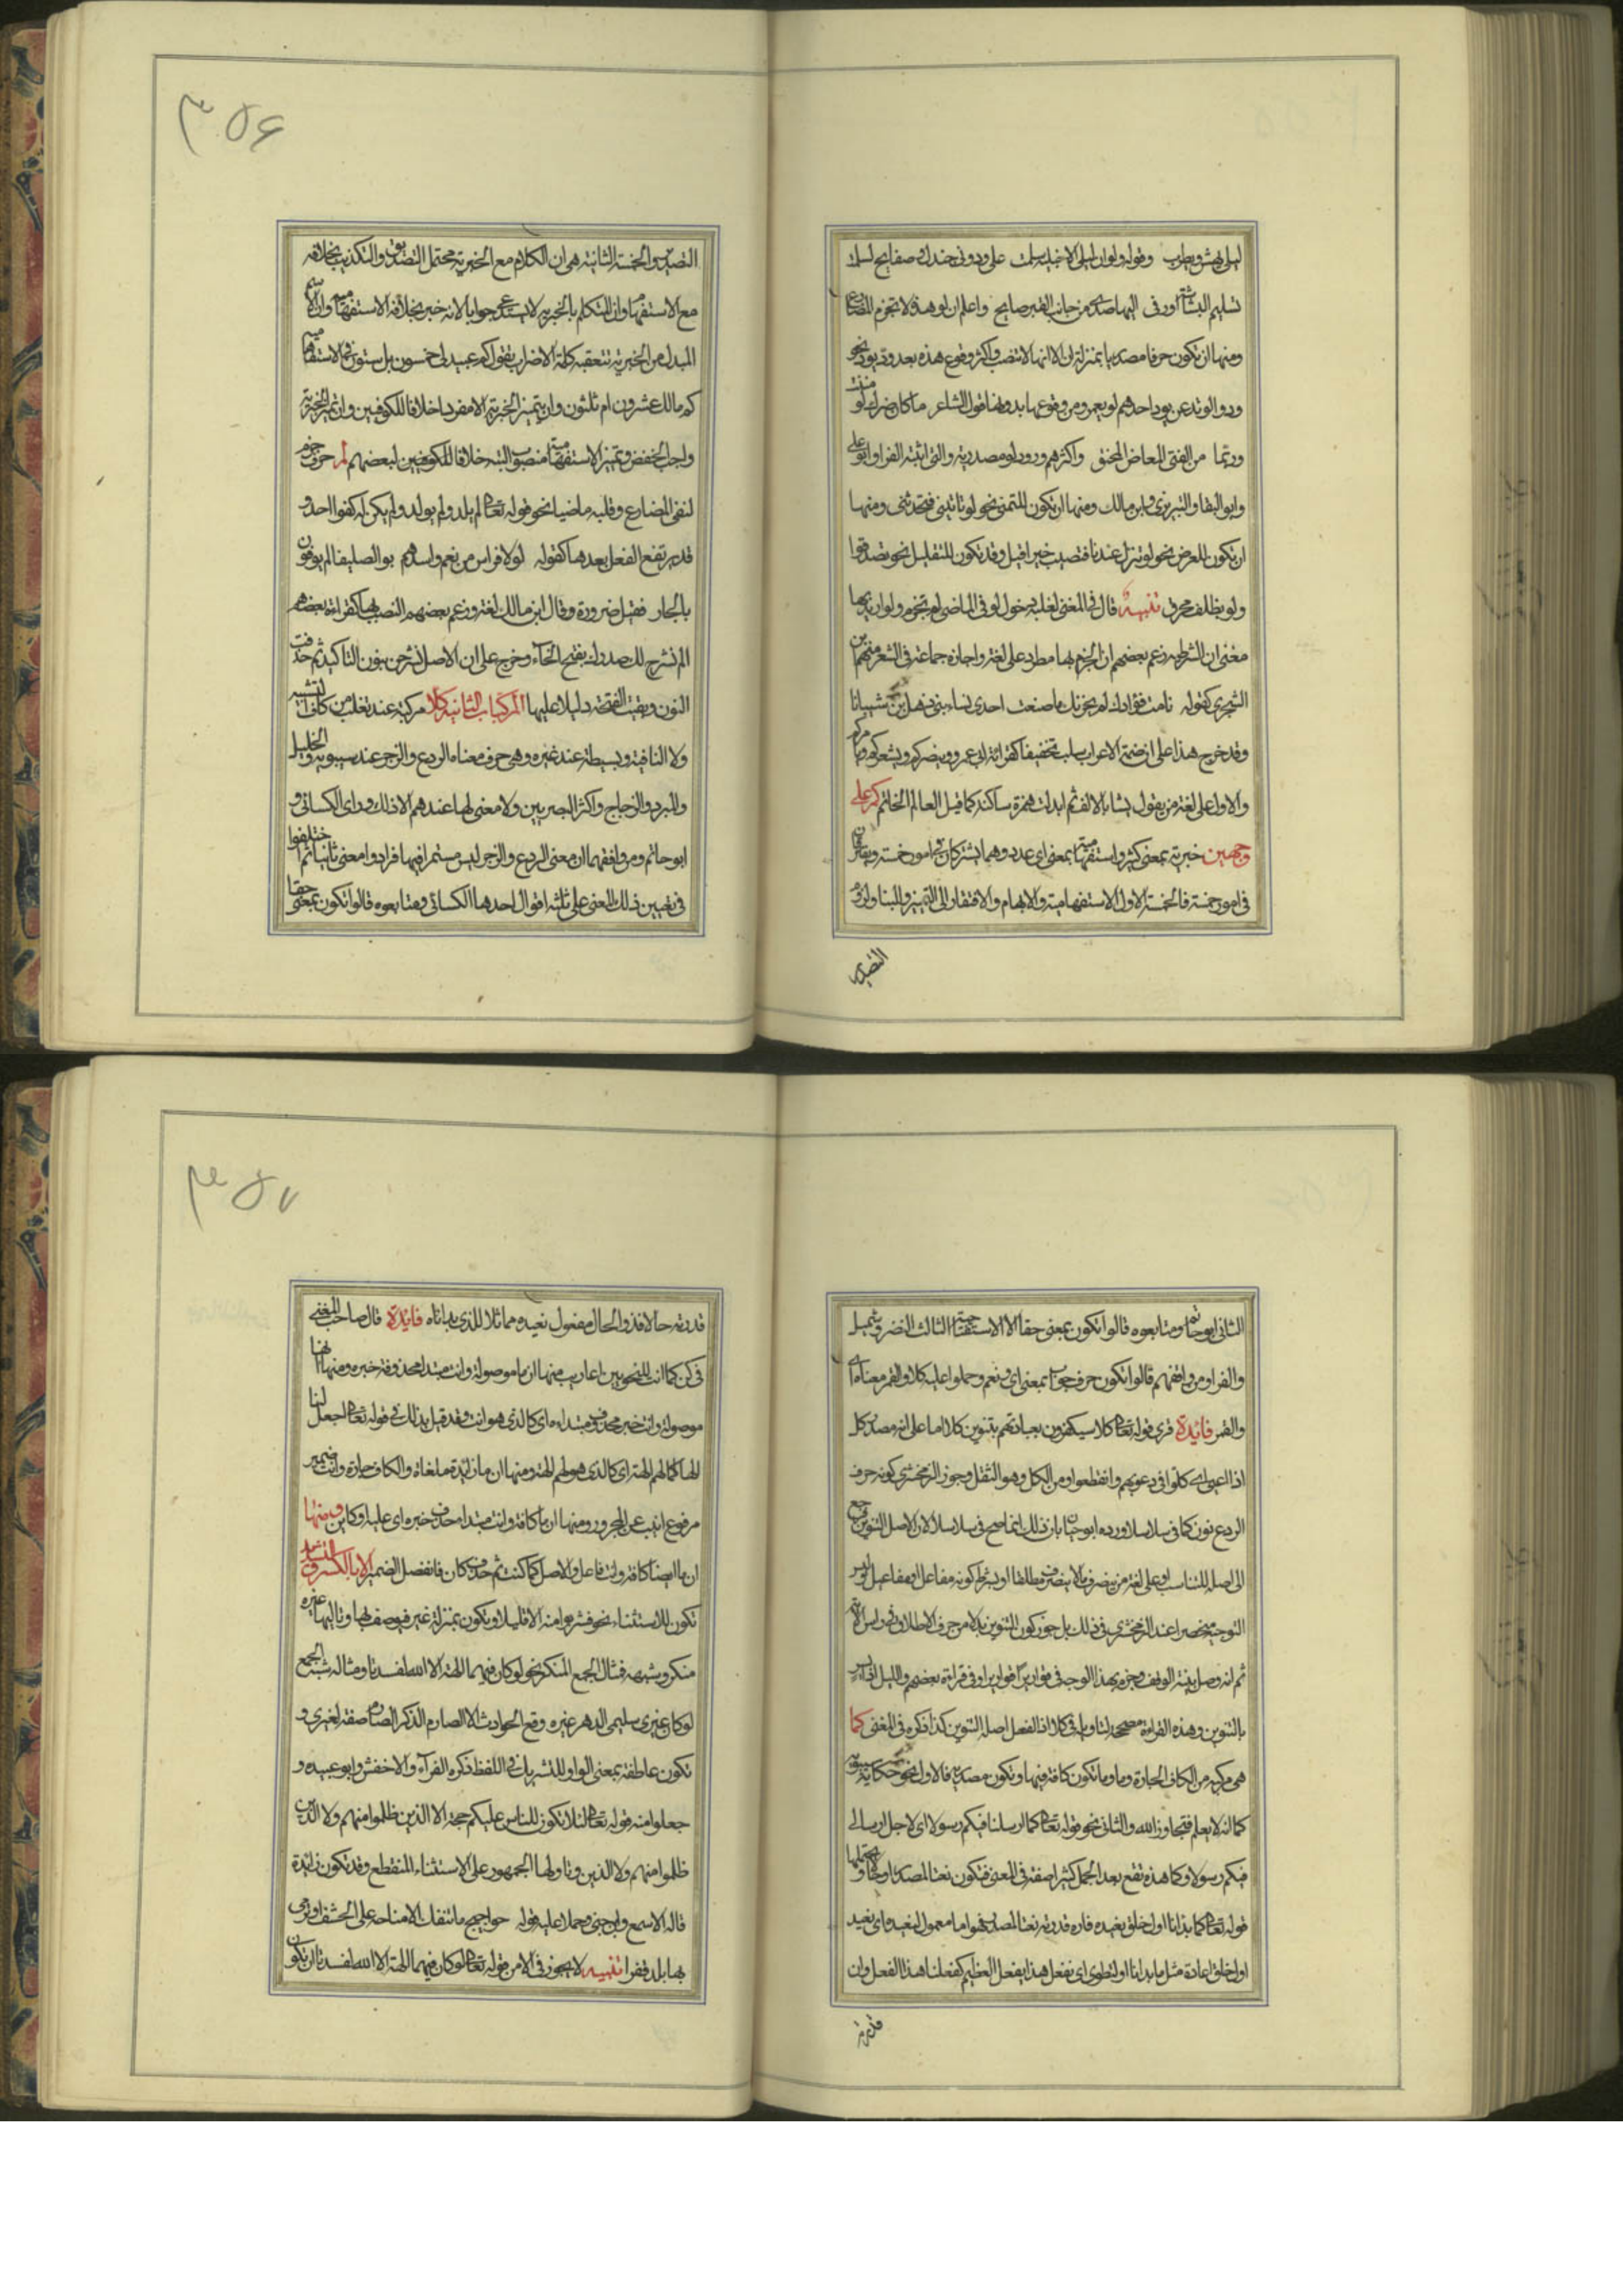 ٣٥۶
ليلى يهش ويطرب وقوله ولو ان ليلى الاخيلية سلمت على ودونى جندل وصفايح لسلمت
تسليم البشاشة اوزقى اليها صدى من جانب القبر صايح واعلم ان لو هذه لا تجزم المضارع
ومنها ان تكون حرفا مصدريا بمنزلة ان الا انها لا تنصب واكثر وقوع هذه بعد ود يود نحو
ودوا لو تدهن يود احدهم لو يعمر ومن وقوعها بدونهما قول الشاعر ما كان ضرك لو مننت
وربما من الفتى المغاض المحنق واكثرهم ورود لو مصدرية والتى اثبته الفرا وابو على
وابو البقا والتبريزى وابن مالك ومنها ان تكون للتمنى نحو لو تاتينى فتحدثنى ومنها
ان تكون للعرض نحو لو تنزل عندنا فتصيب خيرا قيل وقد تكون للتقليل نحو تصدقوا
ولو بظلف محرق تنبيه قال فى المغنى لغلبة دخول لو فى الماضى لم تجزم ولو اريد بها
معنى ان الشرطية وزعم بعضهم ان الجزم بها مطرد على لغة واجازه جماعة فى الشعر منهم ابن
الشجرى كقوله تامت فؤادك لم يحزنك ما صنعت احدى نساء بنى ذهل بن شيبانا
وقد خرج هذا على ان ضمة الاعراب سلبت تخفيفا كقراءة ابى عمرو وينصركم ويشعركم ويامركم
والاول على لغة من يقول يشا بالالف ثم ابدلت همزة ساكنة كما قيل العالم الخاتم كم على
وجهين خبرية بمعنى كثير واستفهامية بمعنى اى عدد وهما يشتركان فى امور خمسة ويفترقان
فى امور خمسة فالخمسة الاول الاستفهامية والابهام والافتقار الى التميز والبنا ولزوم
التصدير
التصدير والخمسة الثانية هى ان الكلام مع الخبرية محتمل التصديق والتكذيب بخلافه
مع الاستفهام وان المتكلم بالخبرية لا يستدعى جوابا لانه خبر بخلافه الاستفهامية وان الاسم
المبدل من الخبرية تتعقبه كلمة الاضراب يقول كم عبيد لى خمسون بل ستون فى الاستفهامية
كم مالك عشرون ام ثلثون وان يتميز الخبرية الا مفردا خلافا للكوفيين وان تميز الخبرية
واجب الخفض وتميز الاستفهامية منصوب البتة خلافا للكوفيين لبعضهم لم حرف جزم
لنفى المضارع وقلبه ماضيا نحو قوله تعالى لم يلد ولم يولد ولم يكن له كفوا احد و
قد يرتفع الفعل بعدها كقوله لولا فوراس من نعم واسرهم يوم الصليفا لم يوفون
بالجار فقيل ضرورة وقال ابن مالك لغة وزعم بعضهم النصب بها كقراءة بعضهم
الم نشرح لك صدرك بفتح الحآء وخرج على ان الاصل نشرحن بنون التاكيد ثم حذفت
النون وبقيت الفتحة دليلا عليها المركبات الثانية كلا مركبة عند ثعلب من كاف التشبيه
ولا النافية وبسيطة عند غيره وهى حرف معناه الردع والزجر عند سيبويه والخليل
والمبرد والزجاج واكثر البصريين ولا معنى لها عندهم الا ذلك وراى الكسائى و
ابو حاتم ومن وافقهما ان معنى الردع والزجر ليس مستمرا فيها فزادوا معنى ثانيا ثم اختلفوا
فى تعيين ذلك المعنى على ثلثة اقوال احدها الكسائى ومتابعوه قالوا تكون بمعنى حقا
٣٥٧
الثانى ابو حاتم ومتابعوه قالوا تكون بمعنى حقا الا الاستفتاحية الثالث النضر بن شميل
والفرا ومن وافقهم قالوا تكون حرف جواب بمعنى اى ونعم وحملوا عليه كلا والقمر معناه اى
والقمر فايدة قرى قوله تعالى كلا سيكفرون بعبادتهم بتنوين كلا اما على انه مصدر كل
اذا اعيى اى كلوا فى دعويهم وانقطعوا ومن الكل وهو الثقل وجوز الزمخشرى كونه حرف
الردع نون كما فى سلاسلا ورده ابو حيان بان ذلك انما صح فى سلاسلا لان الاصل التنوين فرجع
الى اصله للتناسب او على لغة من يصرف ما لا ينصرف مطلقا او بشرط كونه مفاعل او مفاعيل وليس
التوجيه منحصرا عند الزمخشرى فى ذلك بل جوز كون التنوين بدلا من حرف الاطلاق فى راس الاية
ثم انه وصل بنية الوقف وجزم بهذا الوجه فى قواريرا قواريرا وفى قراءة بعضهم والليل اذا يسر
بالتنوين وهذه القراءة مصححة لتاويله فى كلا اذ الفعل اصله التنوين كذا ذكره فى المغنى كما
هى مركبة من الكاف الجارة وما وما تكون كافة فيها وتكون مصدرية فالاول نحو حكاية سيبويه
كما انه لا يعلم فتجاوز الله والثانى نحو قوله تعالى كما ارسلنا فيكم رسولا اى لاجل ارسالى
فيكم رسولا وكما هذه تقع بعد الجمل كثيرا صفة فى المعنى فتكون نعتا لمصدر او حالا ويحتملها
قوله تعالى كما بدانا اول خلق نعيده فان قدرته نعتا لمصدر فهو اما معمول لنعيد اى نعيد
اول خلق اعادة مثل ما بدانا او لنطوى اى نفعل هذا بفعل العظيم كفعلنا هذا الفعل وان
قدرته
قدرته حالا فذو الحال مفعول نعيده مماثلا للذى بداناه فايدة قال صاحب المغنى
فى كن كما انت للنحويين اعاريب منها ان ما موصولة وانت مبتدا محذوفة خبره ومنها انها
موصولة وانت خبر محذوف مبتداءه اى كالذى هو انت وقد قيل بذلك فى قوله تعالى اجعل لنا
الها كما لهم الهة اى كالذى هو لهم الهة ومنها ان ما زايدة ملغاة والكاف جارة وانت ضمير
مرفوع انيب عن المجرور ومنها ان ما كافة وانت مبتدا محذوف خبره اى عليه او كاين ومنها
ان ما ايضا كافة وانت فاعل والاصل كما كنت ثم حذف كان فانفصل الضمير الا بالكسر والتشديد
تكون للاستثناء نحو فشربوا منه الا قليلا وتكون بمنزلة غير فيوصف بها وتاليها غيره
منكر وشبهه فمثال الجمع المنكر نحو لو كان فيهما الهة الا الله لفسدتا ومثال شبه الجمع
لو كان غيرى سليمى الدهر غيره وقع الحوادث الا الصارم الذكر الصارم صفة لغيرى و
تكون عاطفة بمعنى الواو للتشريك فى اللفظ ذكره الفرآء والاخفش وابو عبيده و
جعلوا منه قوله تعالى لئلا تكون للناس عليكم حجة الا الذين ظلموا منهم ولا الذين
ظلموا منهم ولا الذين وتاولها الجمهور على الاستثناء المنقطع وقد تكون زايدة
قاله الاسمعى وابن جنى وحملا عليه قوله حراجيج ما تنفك الا مناخة على الخسف او نرمى
بها بلدا قفرا تنبيه لا يجوز فى الا من قوله تعالى لو كان فيهما الهة الا الله لفسدتا ان تكون